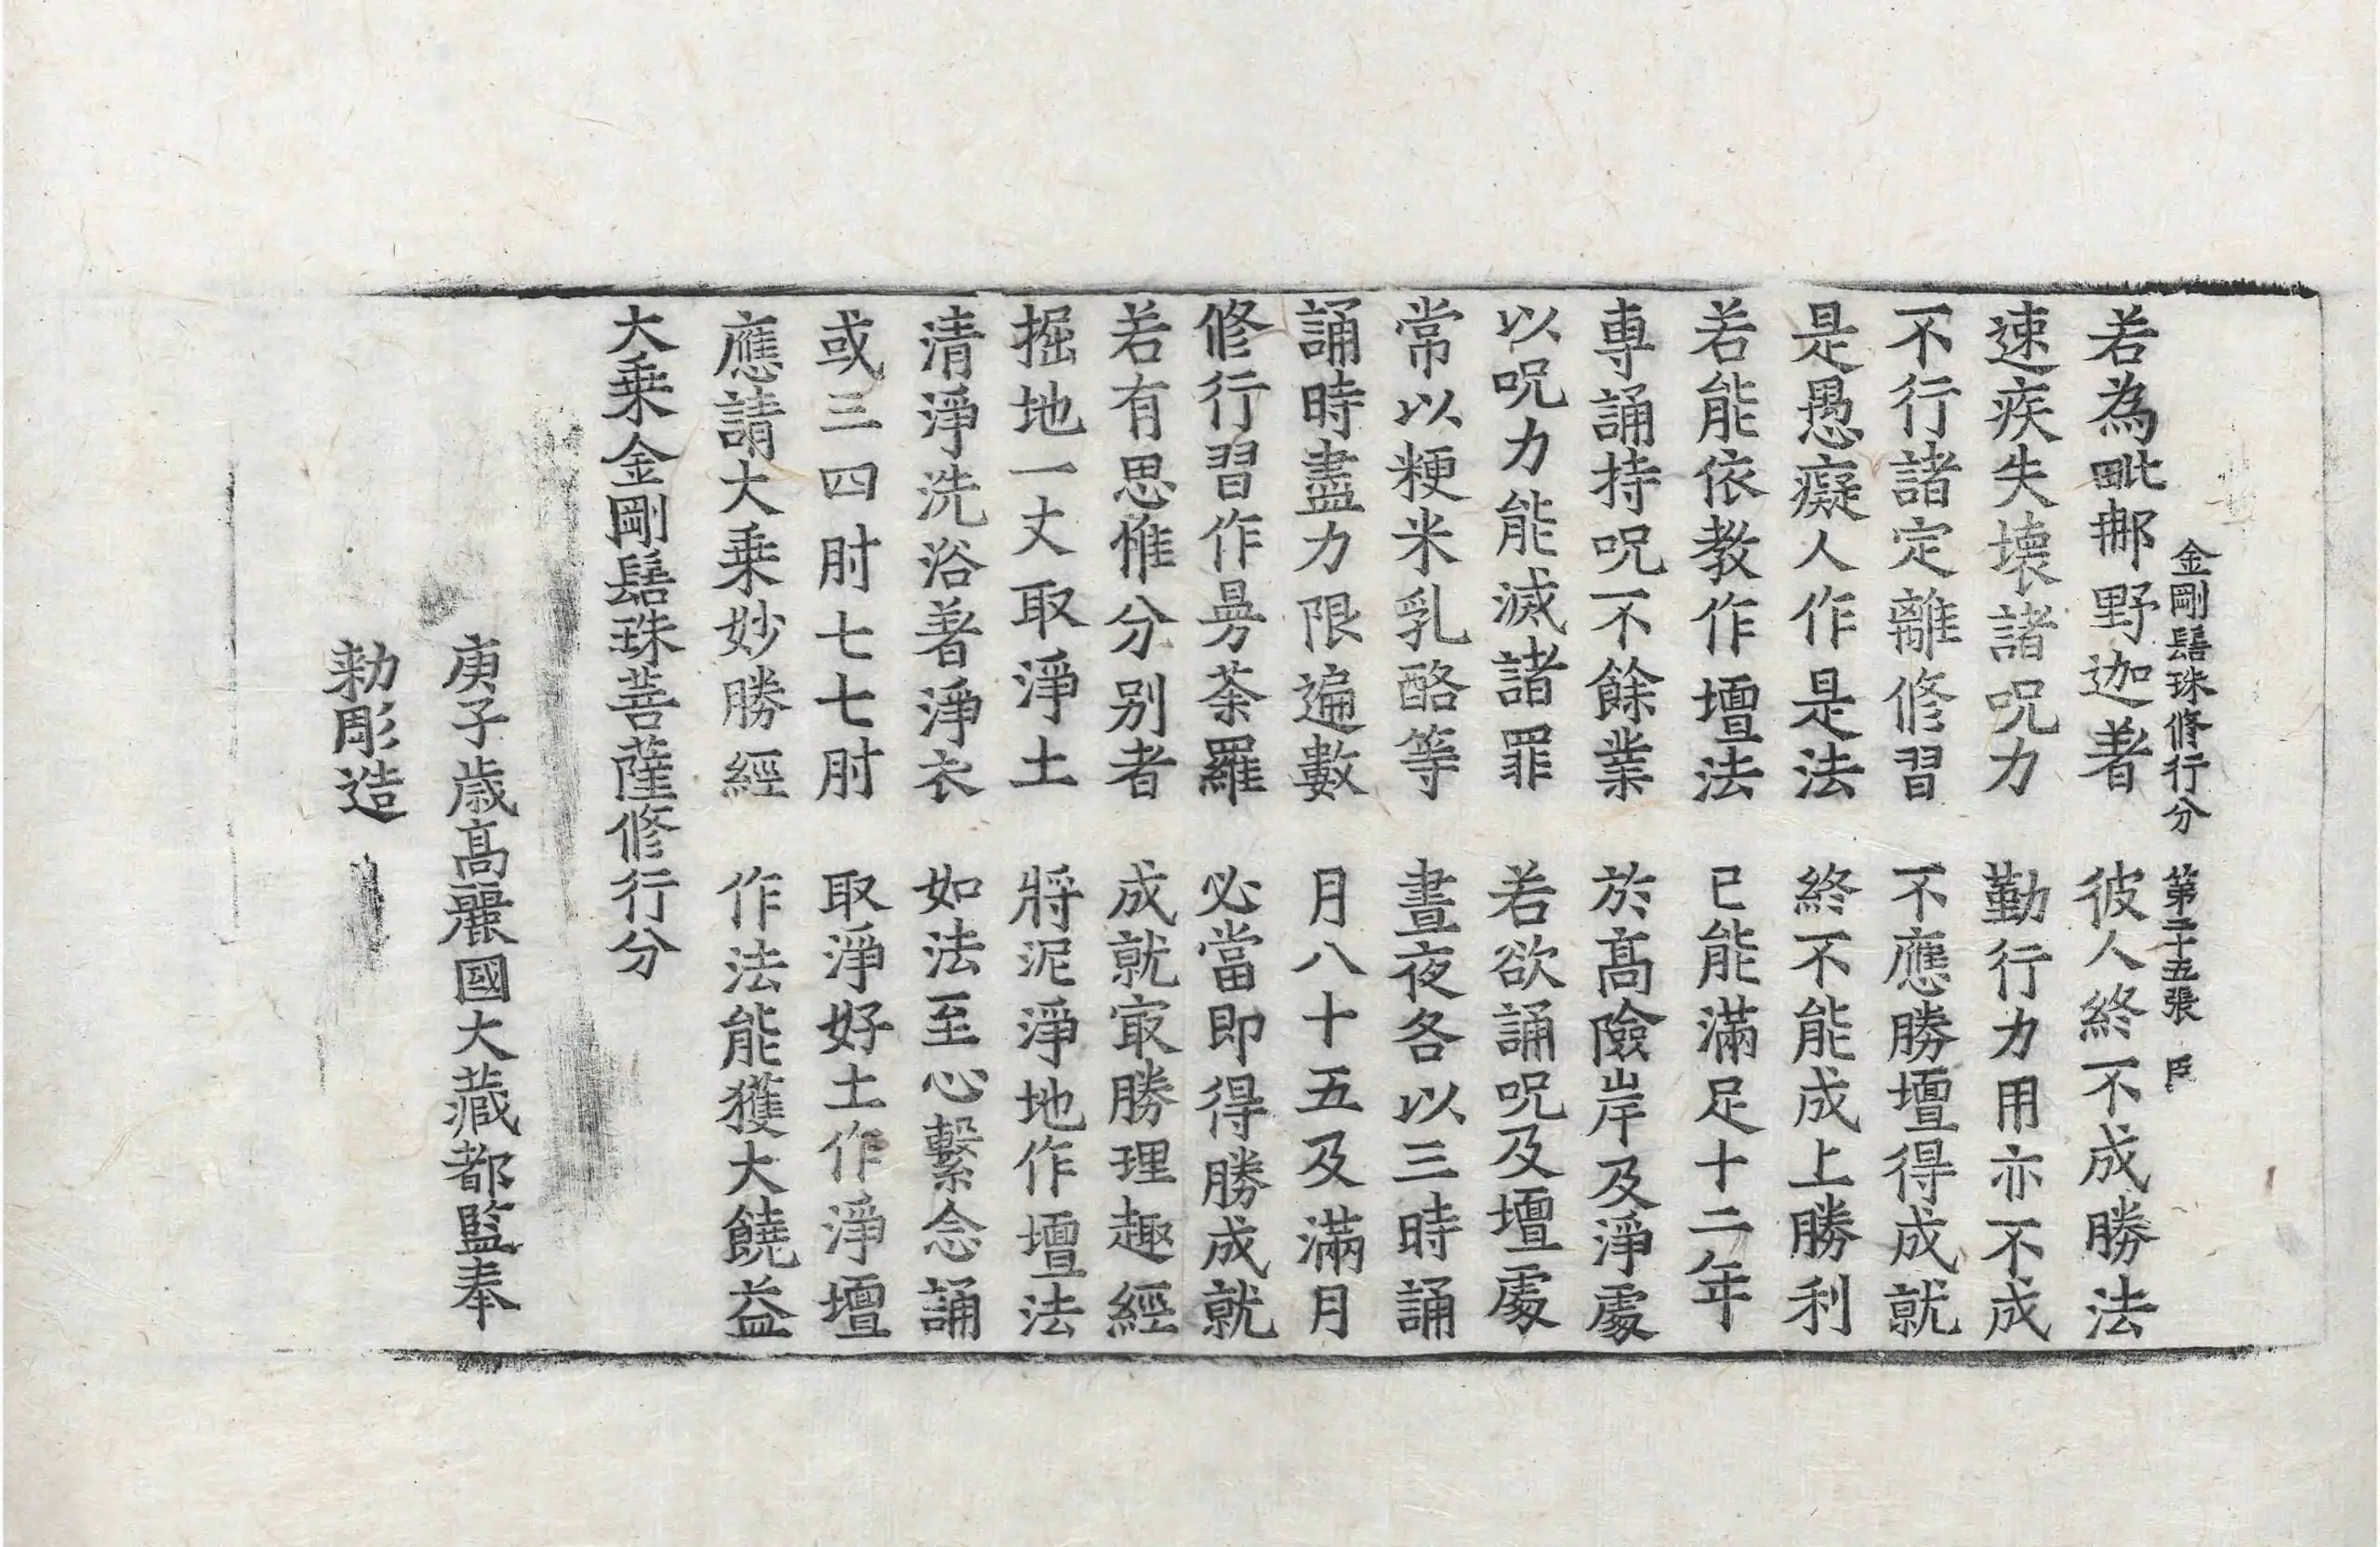 金剛髻珠修行分 第二十五張 臣
若為毗那野迦著 彼人終不成勝法
速疾失壞諸呪力 勤行力用亦不成
不行諸定離修習 不應勝壇得成就
是愚癡人作是法 終不能成上勝利
若能依教作壇法 已能滿足十二年
專誦持呪不餘業 於高險岸及淨處
以呪力能滅諸罪 若欲誦呪及壇處
常以粳米乳酪等 晝夜各以三時誦
誦時盡力限遍數 月八十五及滿月
修行習作曼荼羅 必當即得勝成就
若有思惟分別者 成就㝡勝理趣經
掘地一丈取淨土 將泥淨地作壇法
清淨洗浴著淨衣 如法至心繫念誦
或三四肘七七肘 取淨好土作淨壇
應請大乗妙勝經 作法能獲大饒益
大乗金剛髻珠菩薩修行分
庚子歲高麗國大藏都監奉
勅彫造